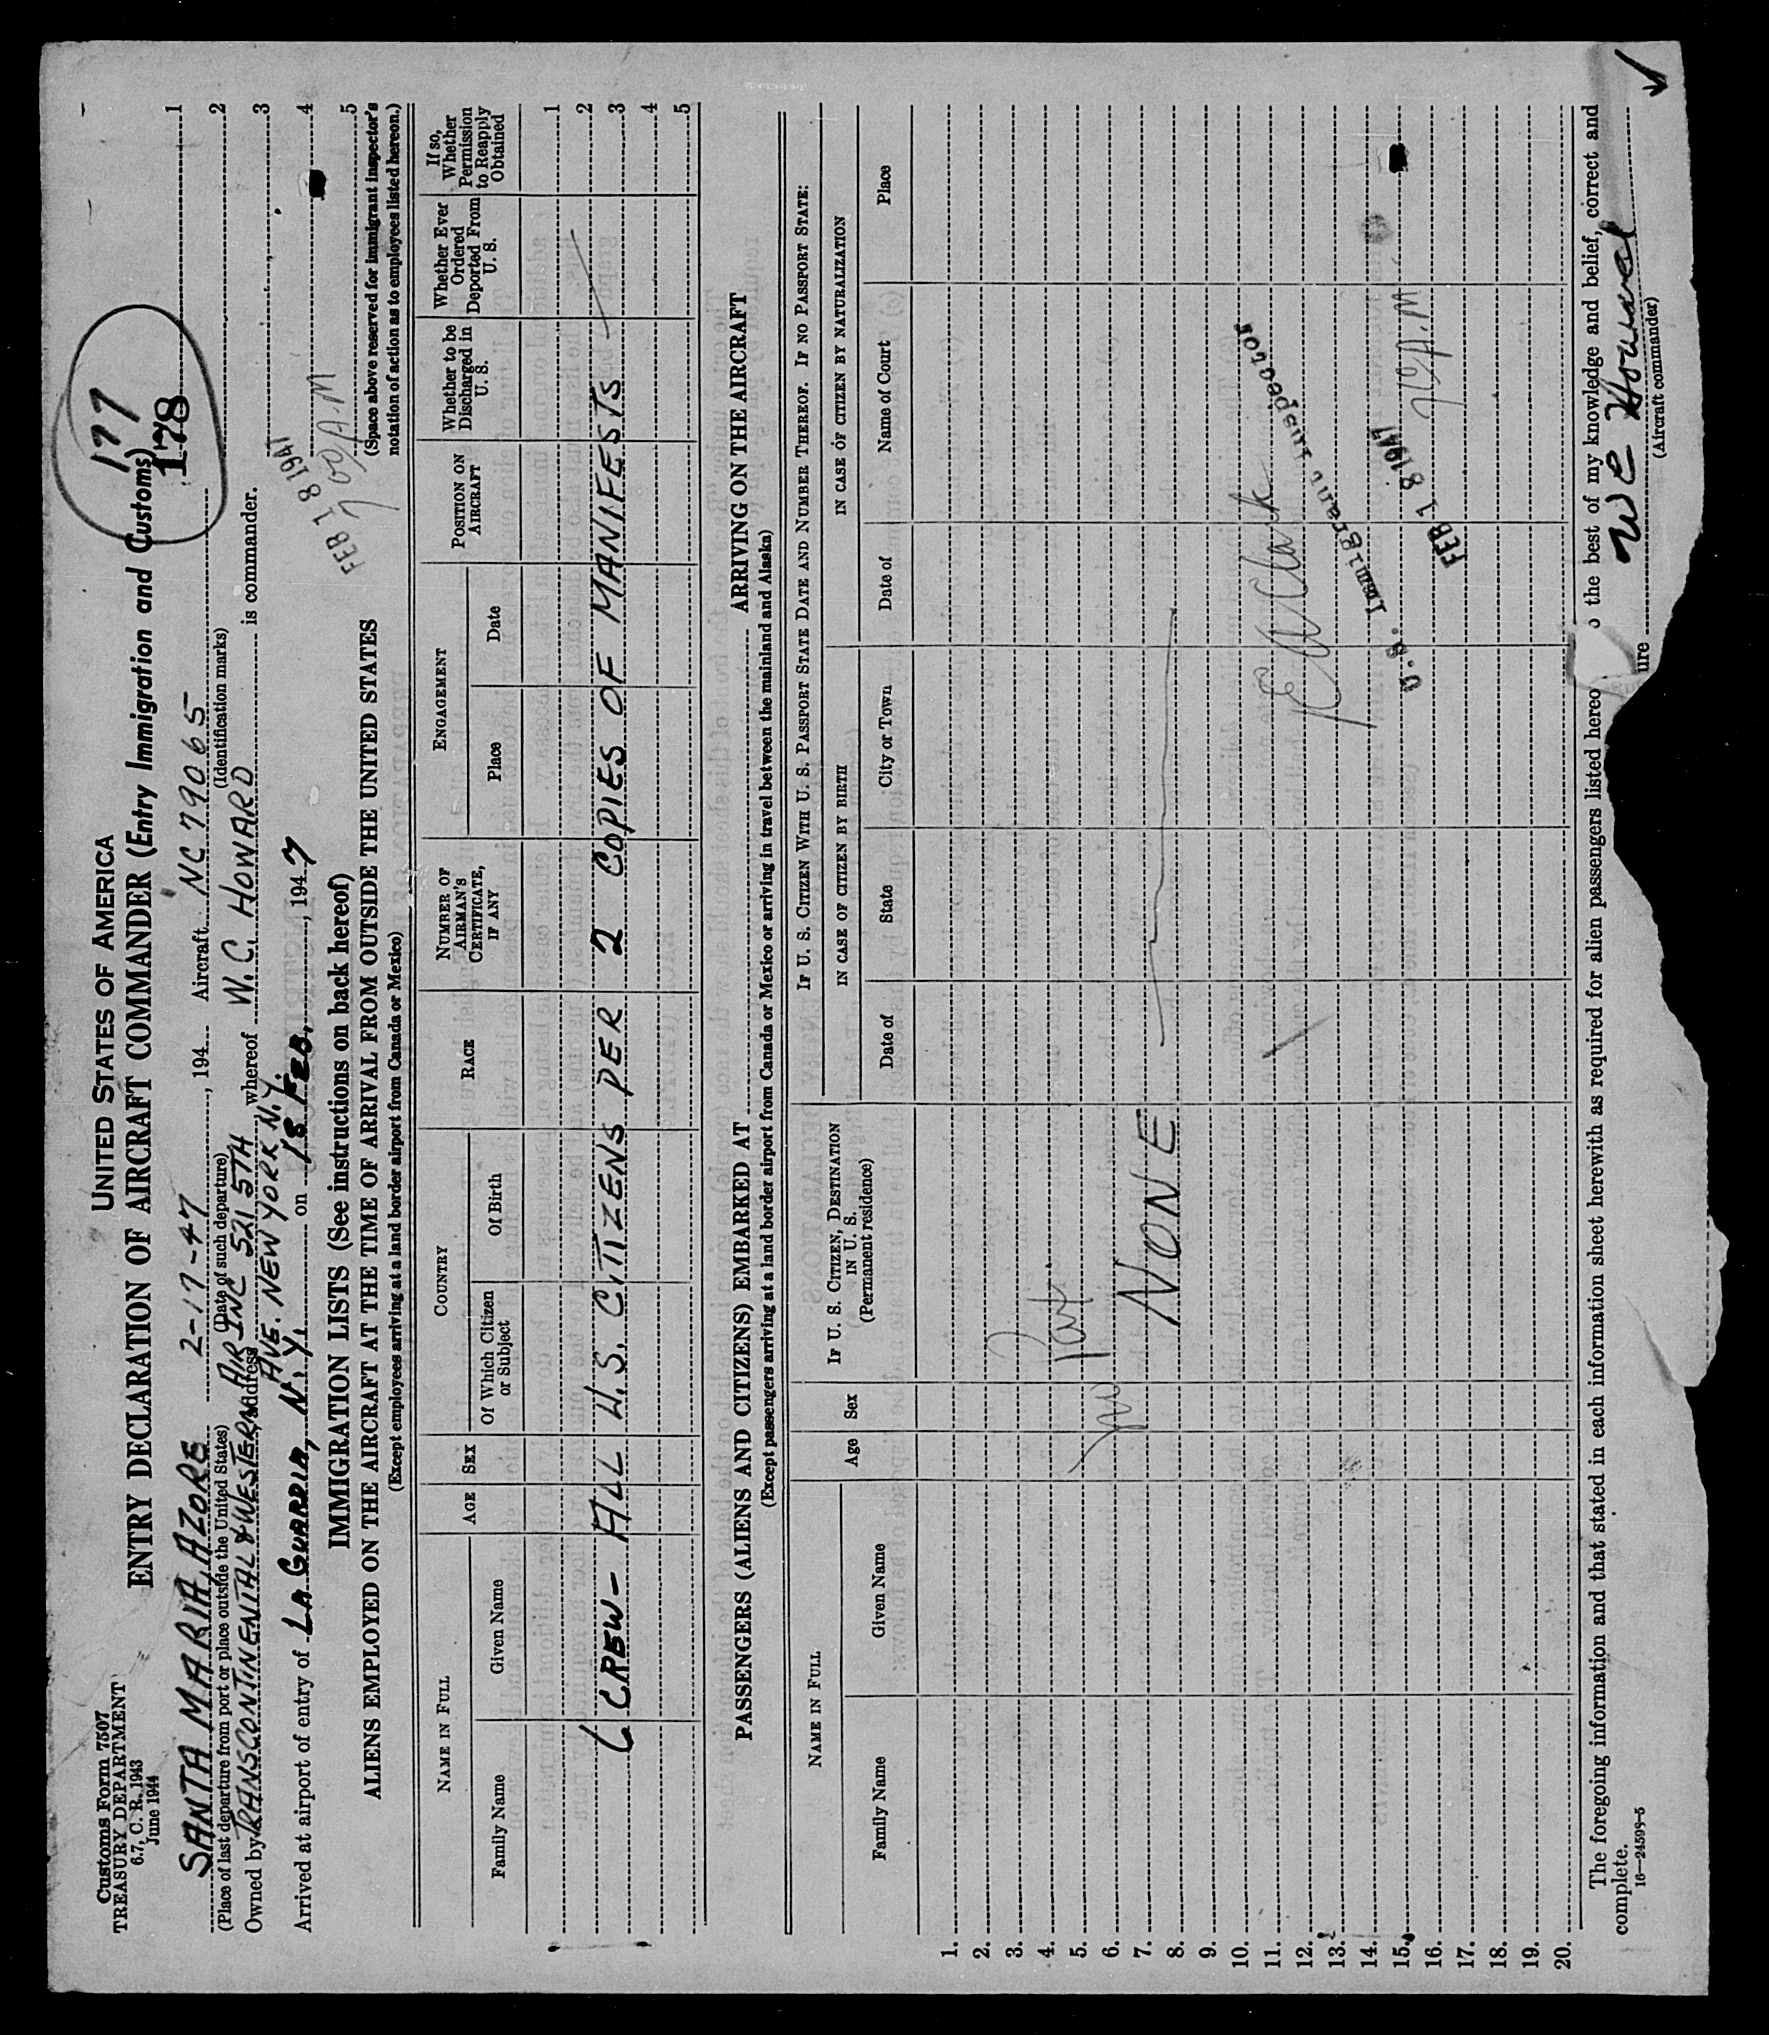 Customs Form 7507
TREASURY DEPARTMENT
6.7, C. R., 1943
June 1944
UNITED STATES OF AMERICA
ENTRY DECLARATION OF AIRCRAFT COMMANDER (Entry Immigration and Customs)
177
178
SANTA MARIA, AZORE 2-17-47, 194 Aircraft NC 79065
(Place of last departure from port or place outside the United States) (Date of such departure) (Identification marks)
Owned by TRANSCONTINENTAL & WESTERN AIR INC address 521 5TH AVE. NEW YORK N.Y. whereof W.C. HOWARD is commander.
Arrived at airport of entry of LA GUARDIA, N.Y. on 18 FEB., 1947
1
2
3
4
5
FEB 18 1947
700 A.M
(Space above reserved for immigrant inspector's
notation of action as to employees listed hereon.)
IMMIGRATION LISTS (See instructions on back hereof)
ALIENS EMPLOYED ON THE AIRCRAFT AT THE TIME OF ARRIVAL FROM OUTSIDE THE UNITED STATES
(Except employees arriving at a land border airport from Canada or Mexico)
NAME IN FULL
Family Name
Given Name
AGE
SEX
COUNTRY
Of Which Citizen or Subject
Of Birth
RACE
NUMBER OF AIRMAN'S CERTIFICATE, IF ANY
ENGAGEMENT
Place
Date
POSITION ON AIRCRAFT
Whether to be Discharged in U. S.
Whether Ever Ordered Deported From U. S.
If so, Whether Permission to Reapply Obtained
1
2
6 CREW - ALL U.S. CITIZENS PER 2 COPIES OF MANIFESTS 3
4
5
PASSENGERS (ALIENS AND CITIZENS) EMBARKED AT ARRIVING ON THE AIRCRAFT
(Except passengers arriving at a land border airport from Canada or Mexico or arriving in travel between the mainland and Alaska)
NAME IN FULL
Family Name
Given Name
Age
Sex
IF U. S. CITIZEN, DESTINATION IN U. S.
(Permanent residence)
IF U. S. CITIZEN WITH U. S. PASSPORT STATE DATE AND NUMBER THEREOF. IF NO PASSPORT STATE:
IN CASE OF CITIZEN BY BIRTH
Date of
State
City or Town
IN CASE OF CITIZEN BY NATURALIZATION
Date of
Name of Court
Place
1.
2.
3.
4.
5.
6.
7.
8. NONE
9.
10.
11.
12.
13.
14.
15.
16.
17.
18.
19.
20.
Clark
U.S. Immigrant Inspector
FEB 18 1947
7 A.M
The foregoing information and that stated in each information sheet herewith as required for alien passengers listed hereo o the best of my knowledge and belief, correct and
complete.
ure W C Howard
(Aircraft commander)
16—24598-5